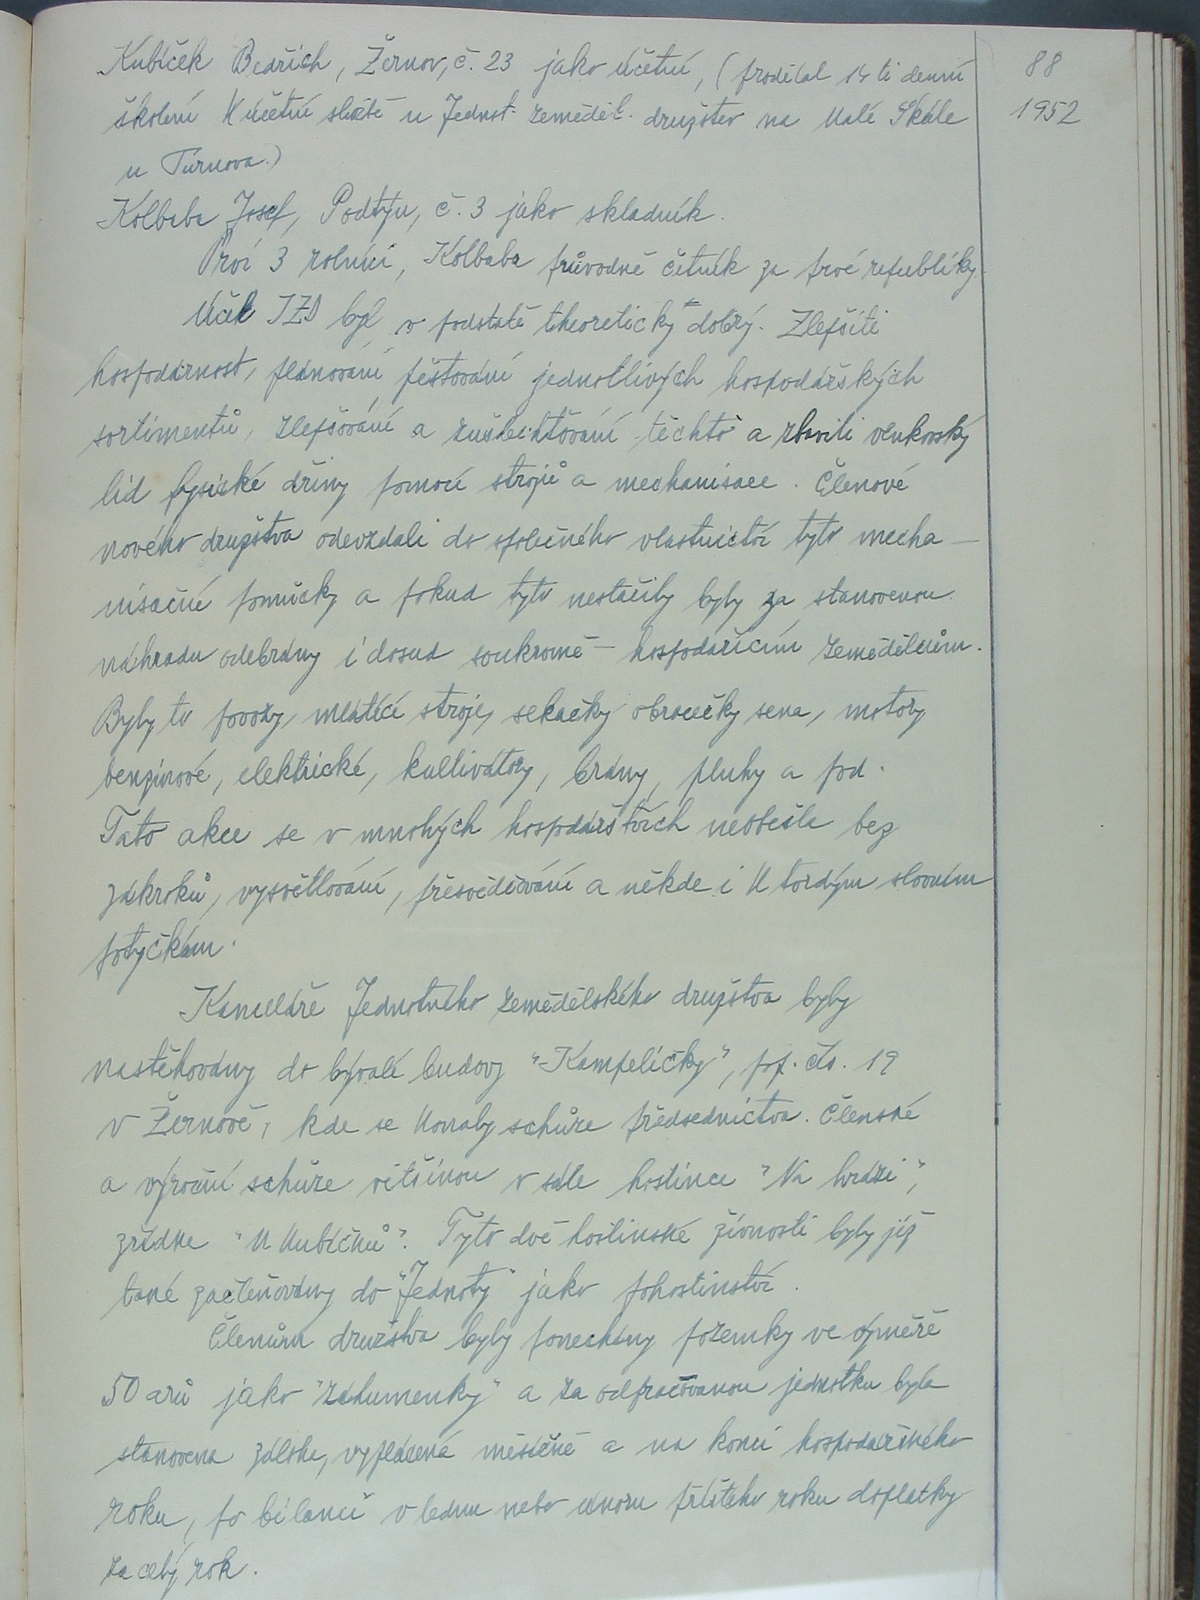 88
1952
Kubíček Bedřich, Žernov, č. 23 jako účetní, (prodělal 14 ti denní
školení k účetní službě u Jednot. zeměděl. družstev na Malé Skále
u Turnova.)
Kolbaba Josef, Podtýn, č. 3 jako skladník.
Prví 3 rolníci, Kolbaba původně četník za prvé republiky.
Účel JZD byl v podstatě theoreticky dobrý. Zlepšiti
hospodárnost, plánování pěstování jednotlivých hospodářských
sortimentů, zlepšování a zušlechťování těchto a zbaviti venkovský
lid fysické dřiny pomocí strojů a mechanisace. Členové
nového družstva odevzdali do společného vlastnictví tyto mecha-
nisační pomůcky a pokud tyto nestačily byly za stanovenou
náhradu odebrány i dosud soukromě - hospodařícím zemědělcům.
Byly to povozy, mlátící stroje, sekačky obracečky sena, motory
benzinové, elektrické, kultivátory, brány, pluhy a pod.
Tato akce se v mnohých hospodářstvích neobešla bez
zákroků, vysvětlování, přesvědčování a někde i k tvrdým slovním
potyčkám.
Kanceláře Jednotného zemědělského družstva byly
nastěhovány do bývalé budovy "Kampeličky", pop. čís. 19
v Žernově, kde se konaly schůze předsednictva. Členské
a výroční schůze většinou v sále hostince "Na hrázi",
zřídka "U Kubíčků". Tyto dvě hostinské živnosti byly již
také začleňovány do "Jednoty" jako pohostinství.
Členům družstva byly ponechány pozemky ve výměře
50 arů jako "záhumenky" a za odpracovanou jednotku byla
stanovena záloha, vyplácená měsíčně a na konci hospodářského
roku, po bilanci v lednu nebo únoru příštího roku doplatky
za celý rok.